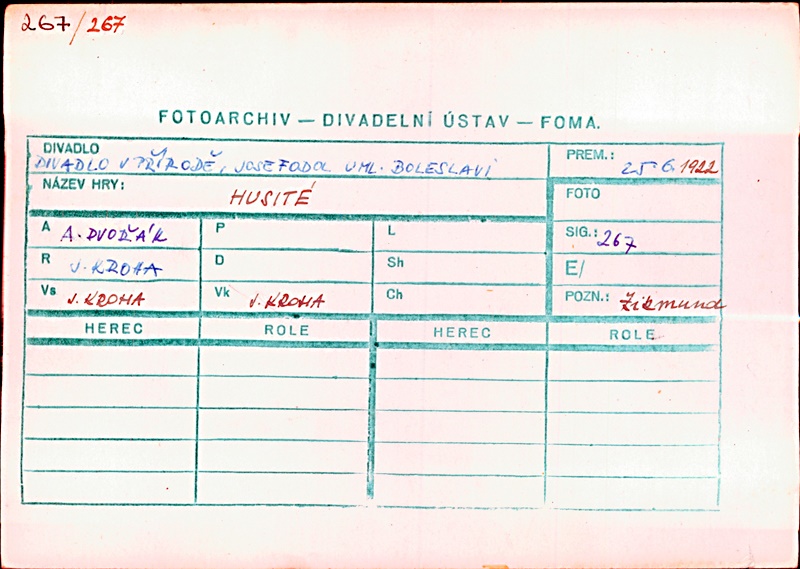 267/267
FOTOARCHIV — DIVADELNÍ ÚSTAV — FOMA.
DIVADLO
DIVADLO V PŘÍRODĚ, JOSEFODOL U ML. BOLESLAVI
PREM.: 25 6. 1922
NÁZEV HRY: HUSITÉ
FOTO
A A. DVOŘÁK P L SIG.: 267
R J. KROHA D Sh E/
Vs J. KROHA Vk J. KROHA Ch POZN.: Žikmund
HEREC ROLE HEREC ROLE